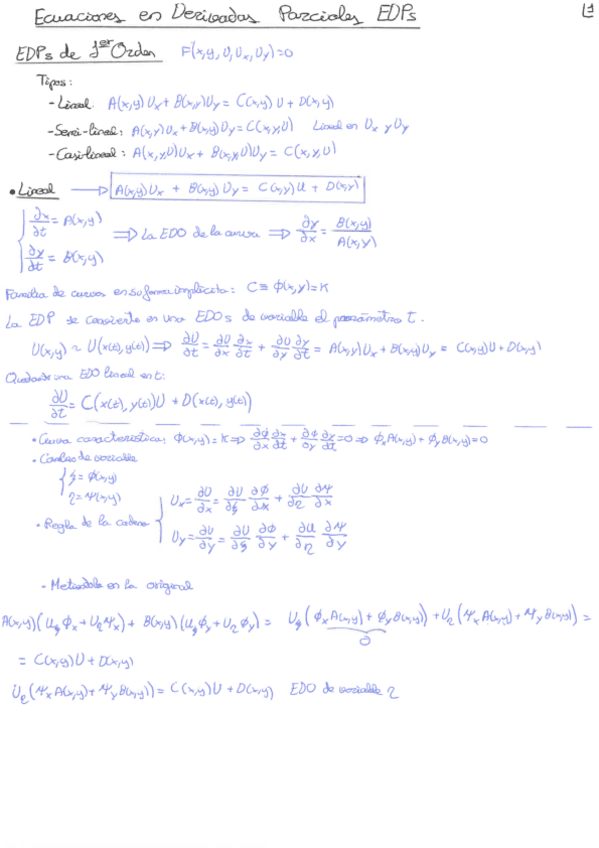 Ecuaciones en Derivadas Parciales EDPs
EDPs de 1er Orden F(x,y,U,Ux,Uy)=0
Tipos:
- Lineal: A(x,y)Ux + B(x,y)Uy = C(x,y)U + D(x,y)
- Semi-lineal: A(x,y)Ux + B(x,y)Uy = C(x,y,U) Lineal en Ux y Uy
- Casi-lineal: A(x,y,U)Ux + B(x,y,U)Uy = C(x,y,U)
• Lineal → A(x,y)Ux + B(x,y)Uy = C(x,y)U + D(x,y)
{ ∂x/∂t = A(x,y)
⇒ La EDO de la curva ⇒ ∂y/∂x = B(x,y)/A(x,y)
∂y/∂t = B(x,y)
Familia de curvas en su forma implícita: C ≡ φ(x,y)=K
La EDP se convierte en una EDO s de variable el parámetro t.
U(x,y) ~ U(x(t),y(t)) ⇒ ∂U/∂t = ∂U/∂x ∂x/∂t + ∂U/∂y ∂y/∂t = A(x,y)Ux + B(x,y)Uy = C(x,y)U + D(x,y)
Quedando una EDO lineal en t:
∂U/∂t = C(x(t),y(t))U + D(x(t),y(t))
• Curva característica: φ(x,y)=K ⇒ ∂φ/∂x ∂x/∂t + ∂φ/∂y ∂y/∂t = 0 ⇒ φx A(x,y) + φy B(x,y) = 0
• Cambio de variable
{ ξ = φ(x,y)
η = ψ(x,y)
• Regla de la cadena { Ux = ∂U/∂x = ∂U/∂ξ ∂φ/∂x + ∂U/∂η ∂ψ/∂x
Uy = ∂U/∂y = ∂U/∂ξ ∂φ/∂y + ∂U/∂η ∂ψ/∂y
- Metiendolo en la original
A(x,y)(Uξ φx + Uη ψx) + B(x,y)(Uξ φy + Uη φy) = Uξ(φx A(x,y) + φy B(x,y)) + Uη(ψx A(x,y) + ψy B(x,y)) =
0
= C(x,y)U + D(x,y)
Uη(ψx A(x,y) + ψy B(x,y)) = C(x,y)U + D(x,y) EDO de variable η